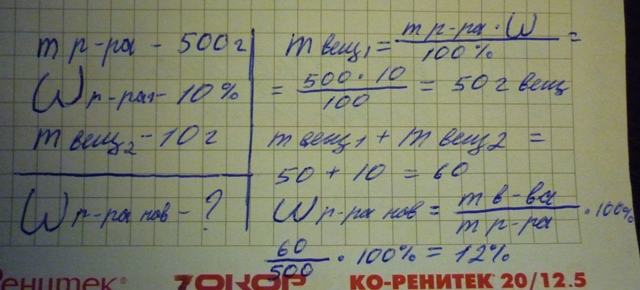 m р-ра - 500 г
ω р-ра1 - 10 %
m вещ2 - 10 г
ω р-ра нов - ?
m вещ1 = m р-ра · ω / 100 % =
= 500 · 10 / 100 = 50 г вещ
m вещ1 + m вещ2 =
50 + 10 = 60
ω р-ра нов = m в-ва / m р-ра · 100%
60 / 500 · 100% = 12%
Ренитек® ЗОКОР КО-РЕНИТЕК 20/12.5